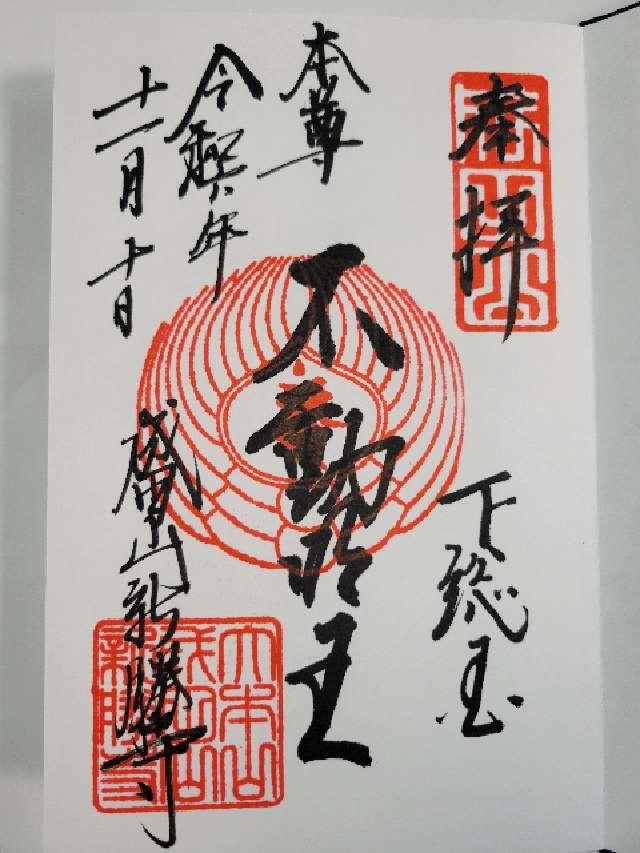 奉拝
下総国
本尊
不動明王
令和六年
十一月十日
成田山新勝寺
大本山
成田山
新勝寺